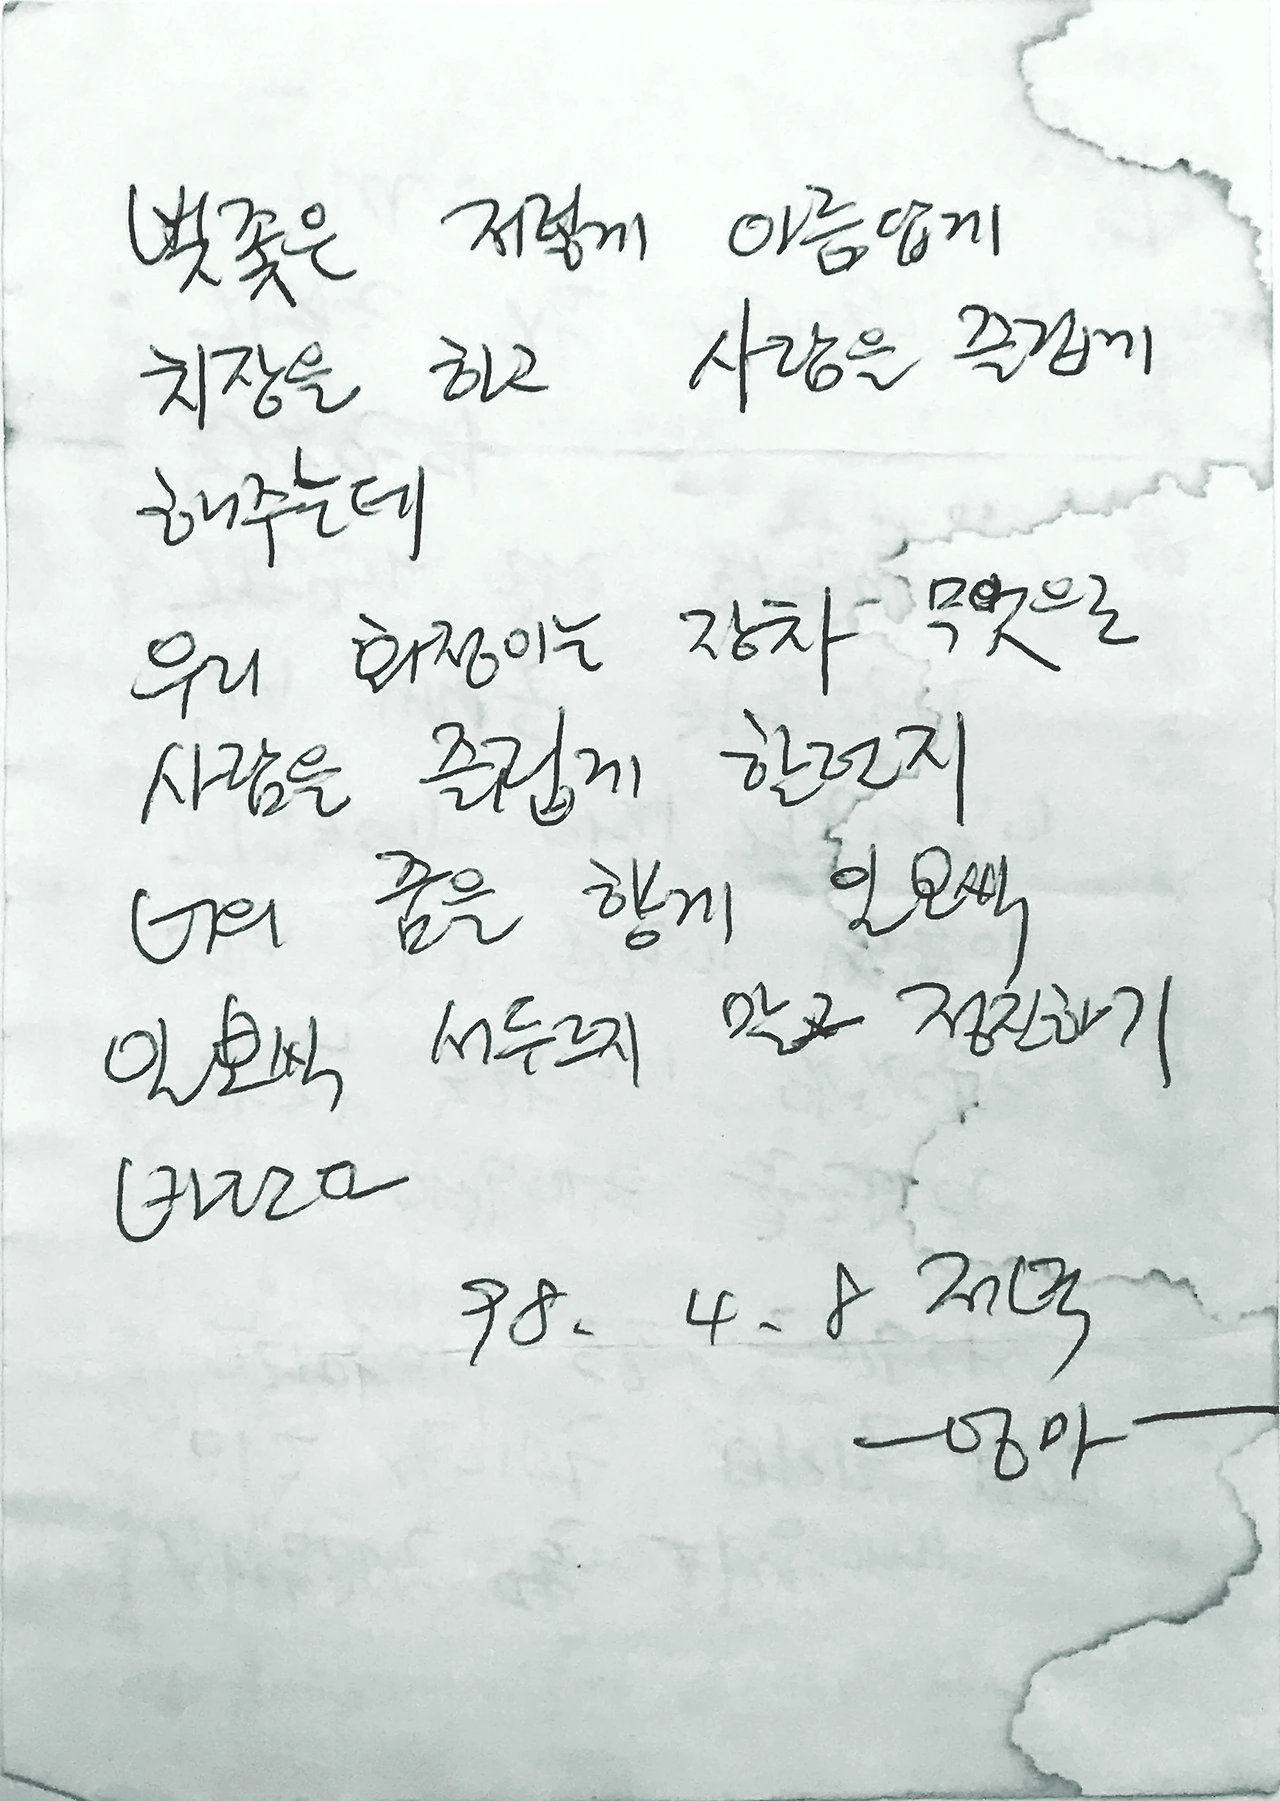 벚꽃은 저렇게 아름답게
치장을 하고 사람을 즐겁게
해주는데
우리 화정이는 장차 무엇으로
사람을 즐겁게 할런지
너의 꿈을 향해 일보씩
일보씩 서두르지 말고 정진하기
바라요
98. 4. 8 저녁
엄마